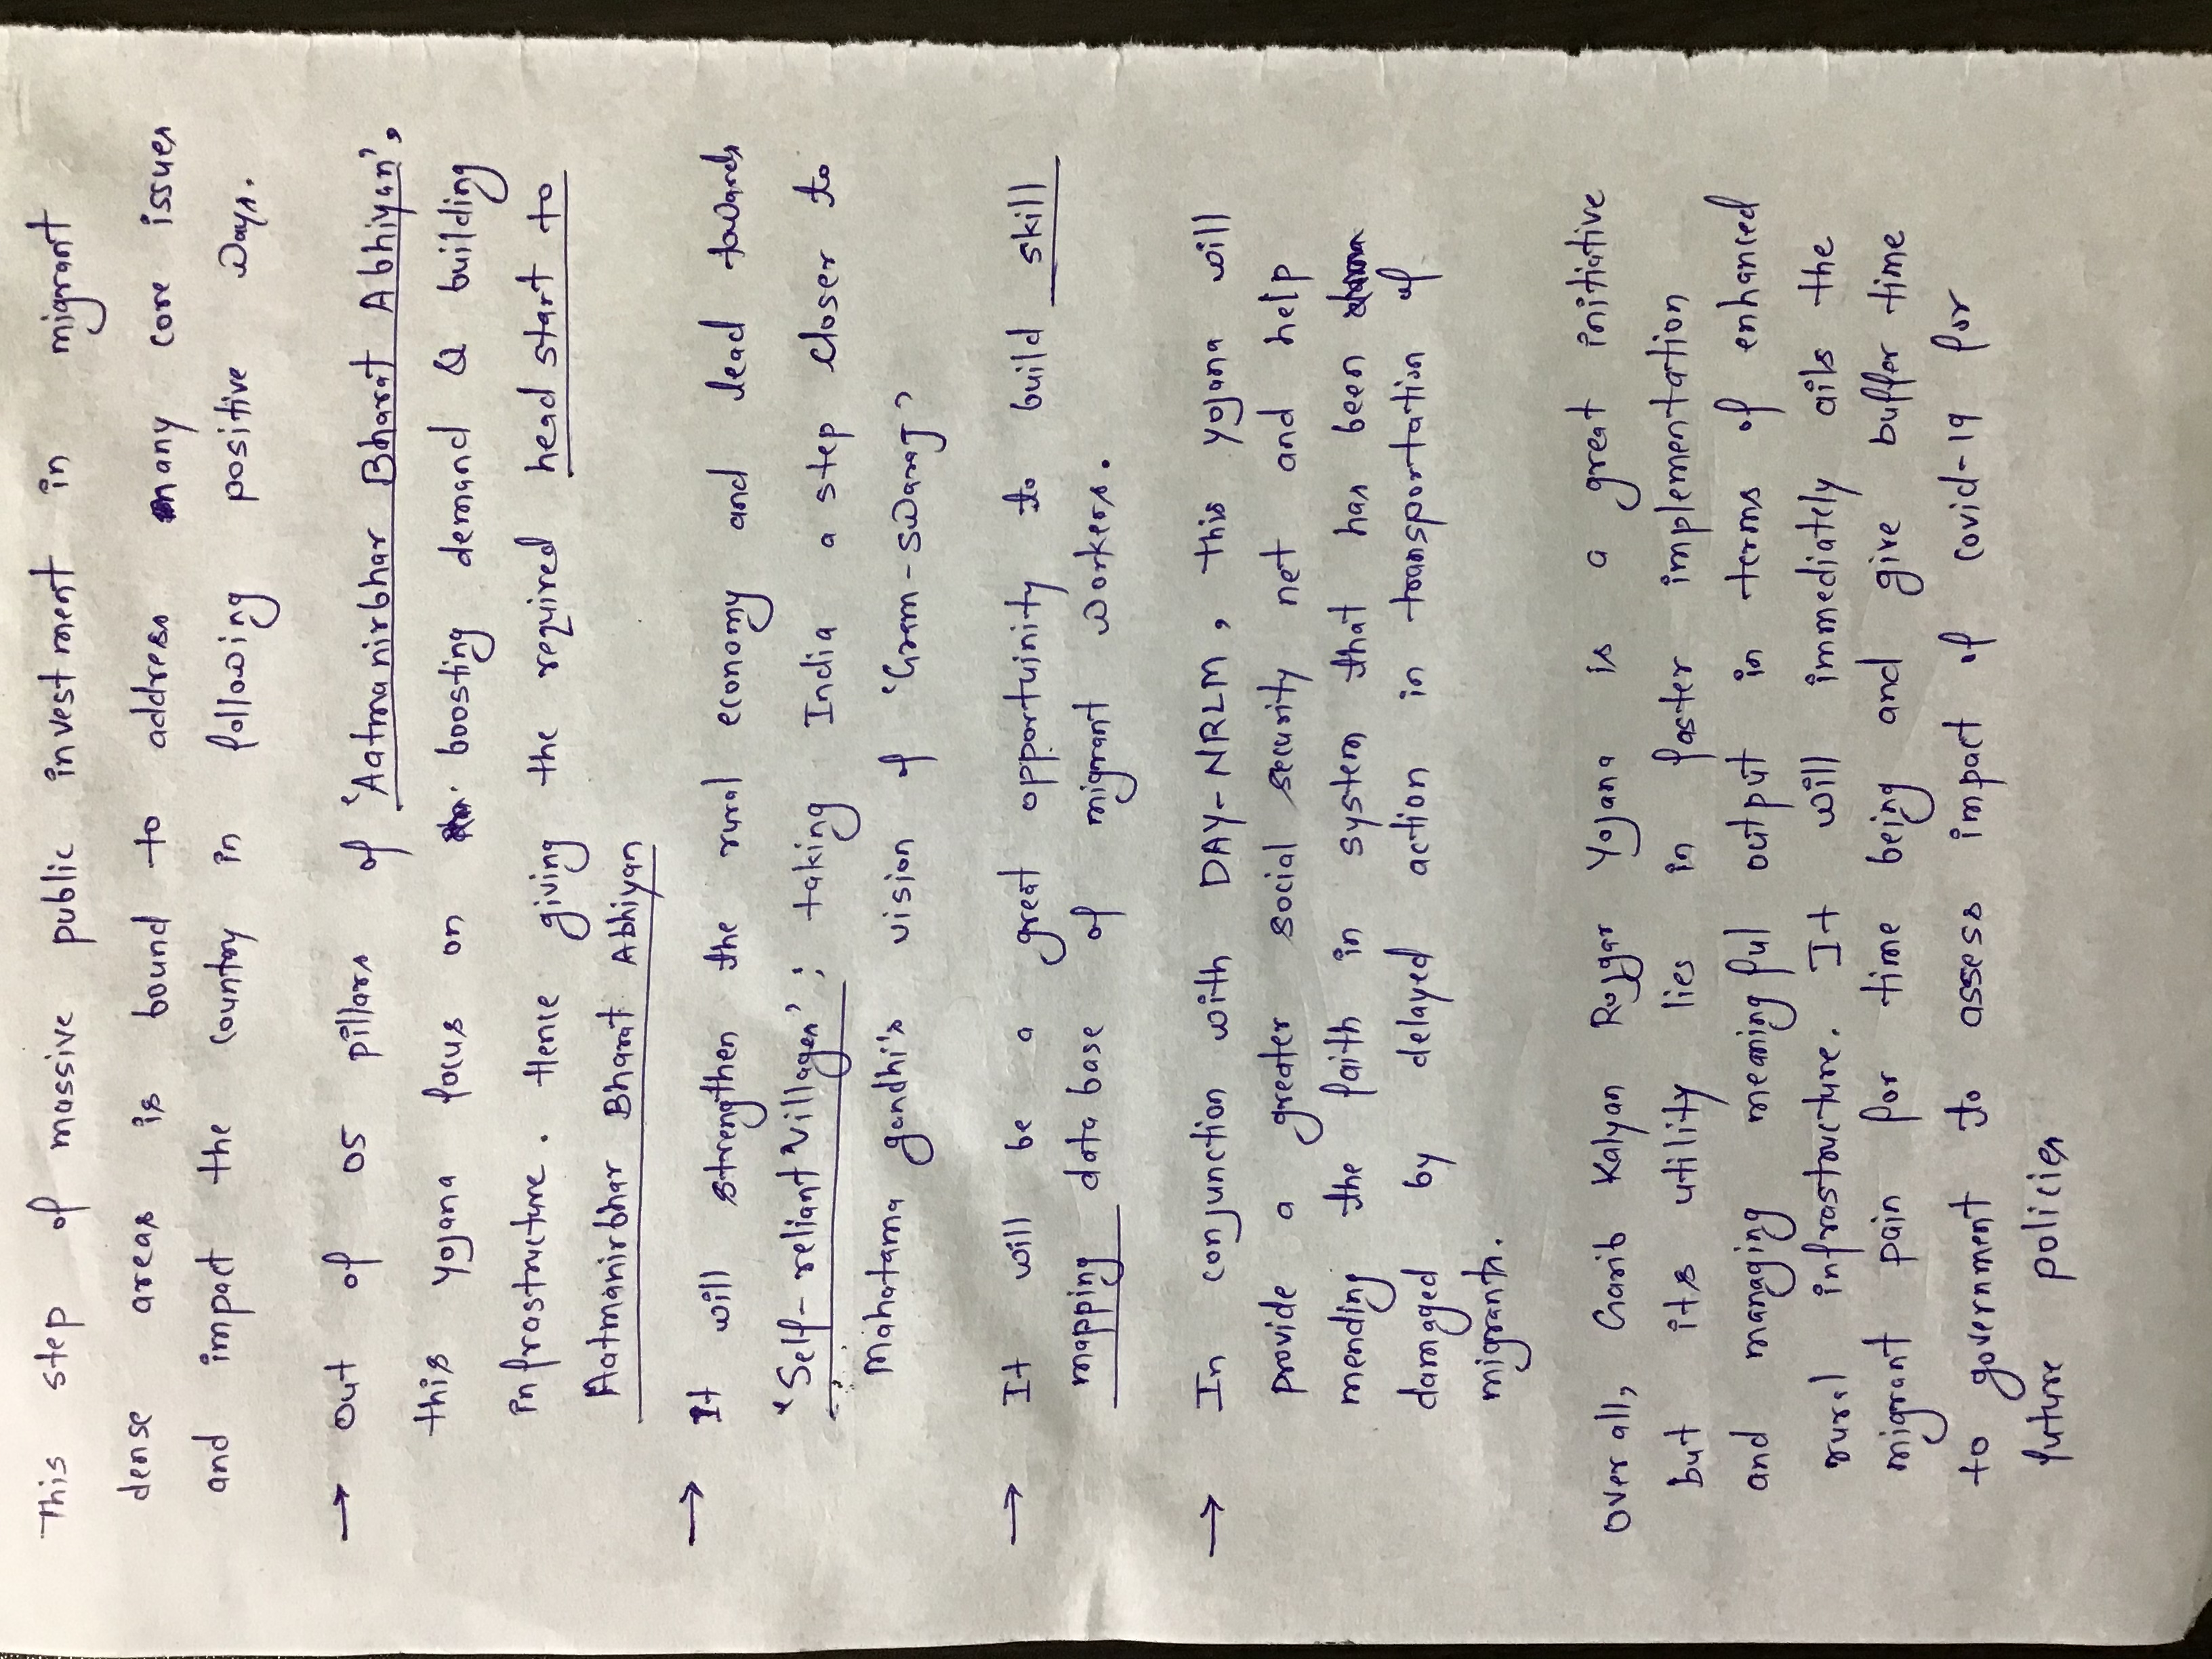 This step of massive public investment in migrant
dense areas is bound to address many core issues
and impact the country in following positive ways.
→ Out of 05 pillars of 'Aatmanirbhar Bharat Abhiyan',
this yojana focus on boosting demand & building
infrastructure. Hence giving the required head start to
Aatmanirbhar Bharat Abhiyan
→ It will strengthen the rural economy and lead towards
"Self-reliant Villages'; taking India a step closer to
Mahatama gandhi's vision of 'Gram-swaraj'
→ It will be a great opportuinity to build skill
mapping data base of migrant workers.
→ In conjunction with DAY-NRLM, this yojana will
provide a greater social security net and help
mending the faith in system that has been
damaged by delayed action in transportation of
migrants.
Over all, Garib Kalyan Rojgar Yojana is a great initiative
but its utility lies in faster implementation
and managing meaningful output in terms of enhanced
rural infrastructure. It will immediately ails the
migrant pain for time being and give buffer time
to government to assess impact of covid-19 for
future policies